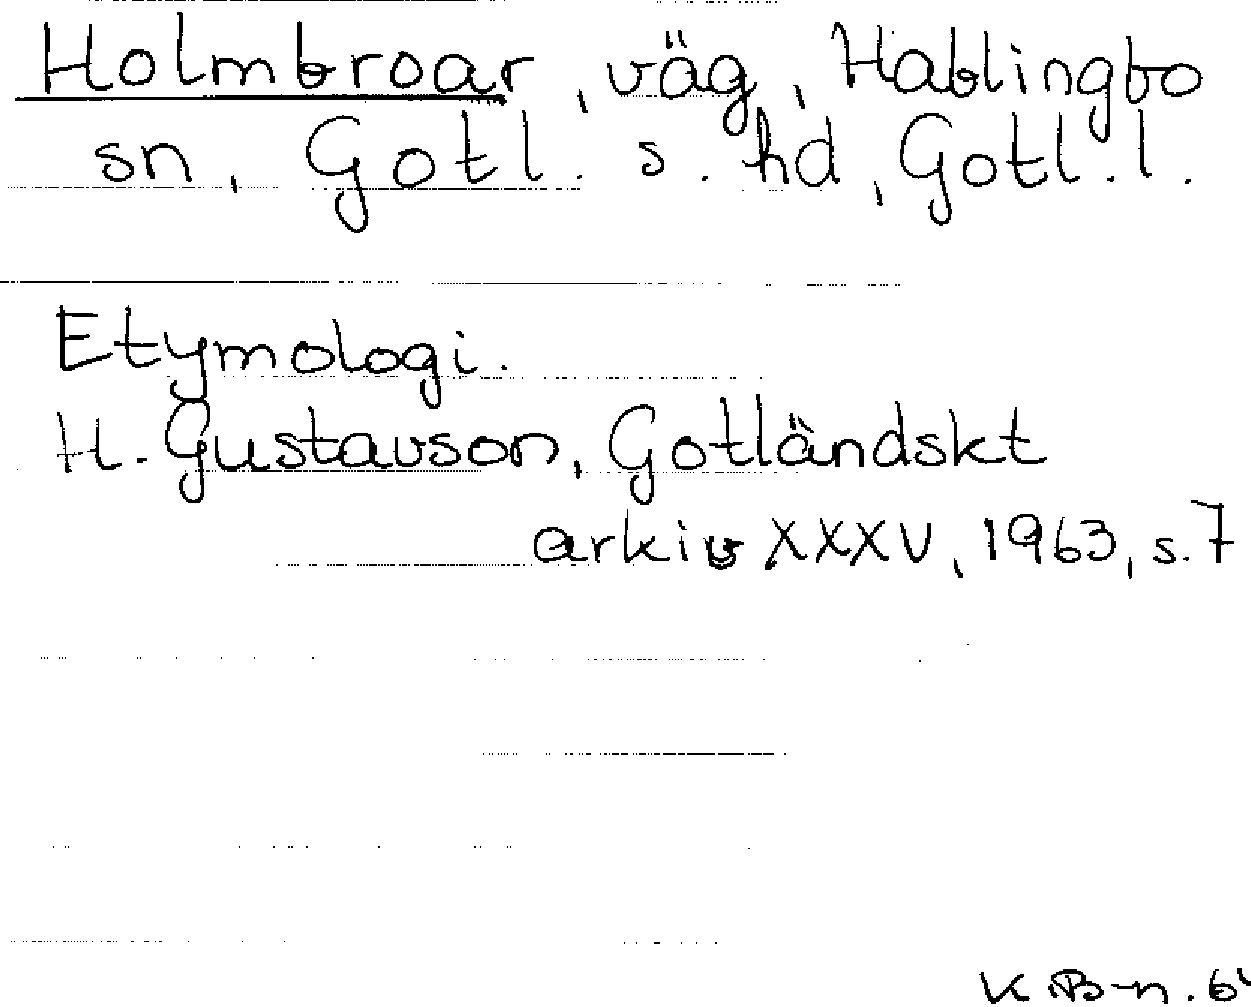 Holmbroar, väg, Hablingbo
sn, Gotl. s. hd, Gotl. l.
Etymologi.
H. Gustavson, Gotländskt
arkiv XXXV, 1963, s. 7
K B-n.